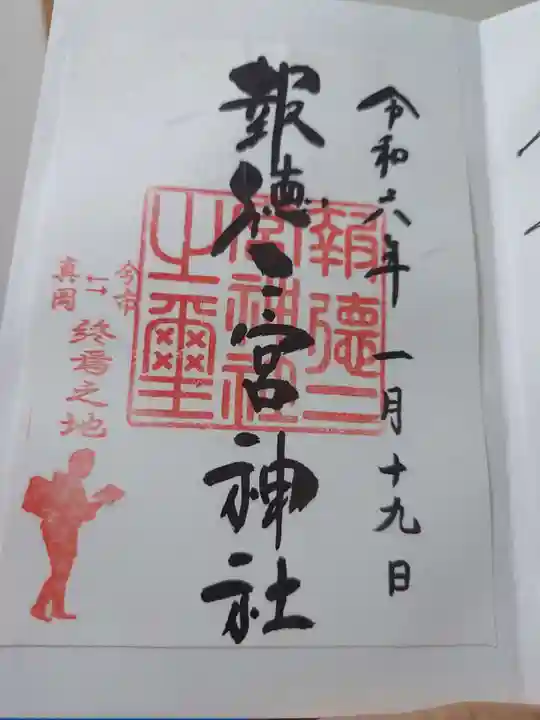 令和六年一月十九日
報徳二宮神社
報徳二
宮神社
之璽
今市
↔
真岡
終焉之地